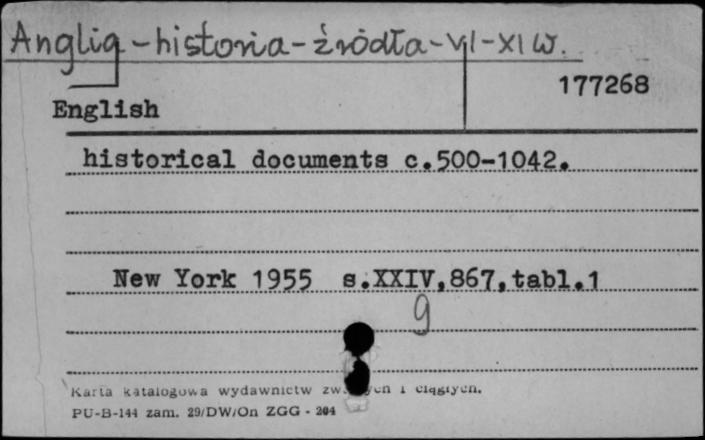 Anglia-historia-źródła-VI-XI w.
177268
English
historical documents c.500-1042.
New York 1955 s.XXIV,867,tabl.1
9
Karta katalogowa wydawnictw i ciągłych.
PU-B-144 zam. 29/DW/On ZGG - 204